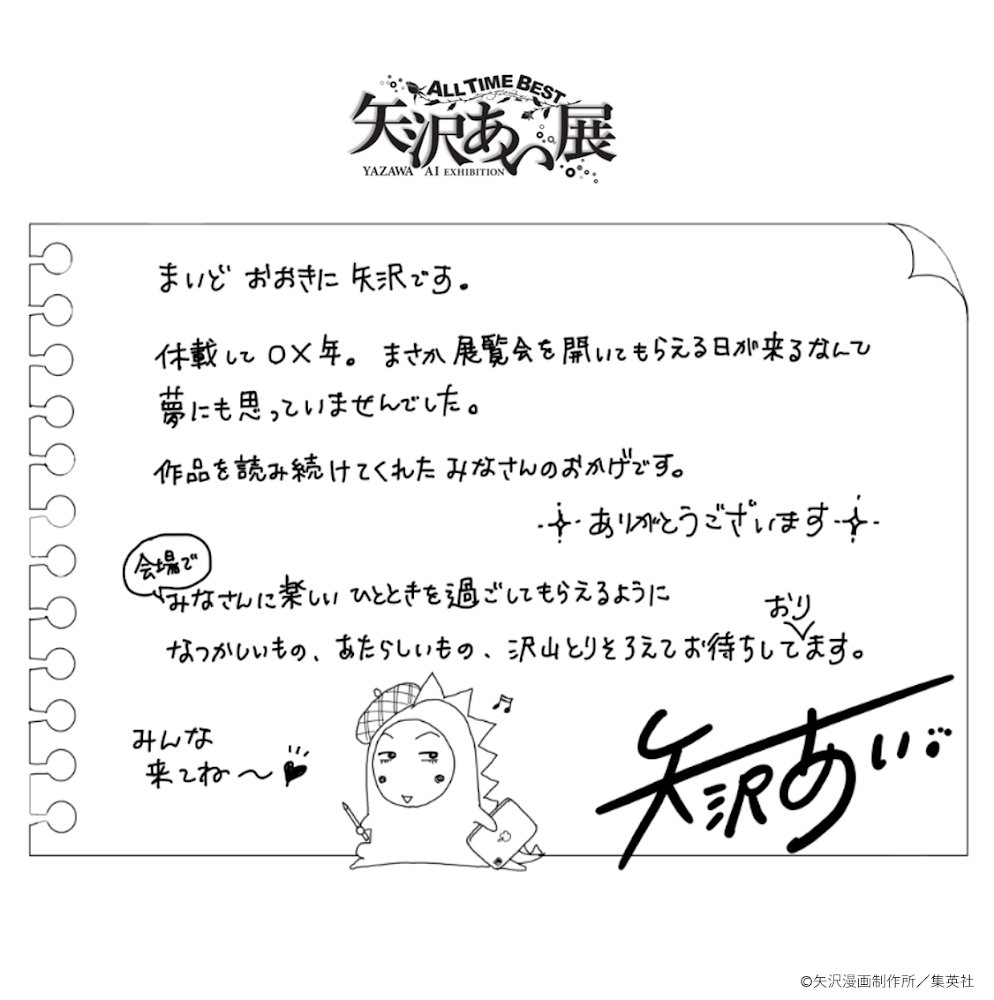 ALL TIME BEST
矢沢あい展
YAZAWA AI EXHIBITION
まいど おおきに 矢沢です。
休載して○×年。まさか展覧会を開いてもらえる日が来るなんて
夢にも思っていませんでした。
作品を読み続けてくれたみなさんのおかげです。
ありがとうございます
会場で
みなさんに楽しいひとときを過ごしてもらえるように
おり
なつかしいもの、あたらしいもの、沢山とりそろえてお待ちしてます。
みんな
来てね〜
矢沢あい
©矢沢漫画制作所/集英社